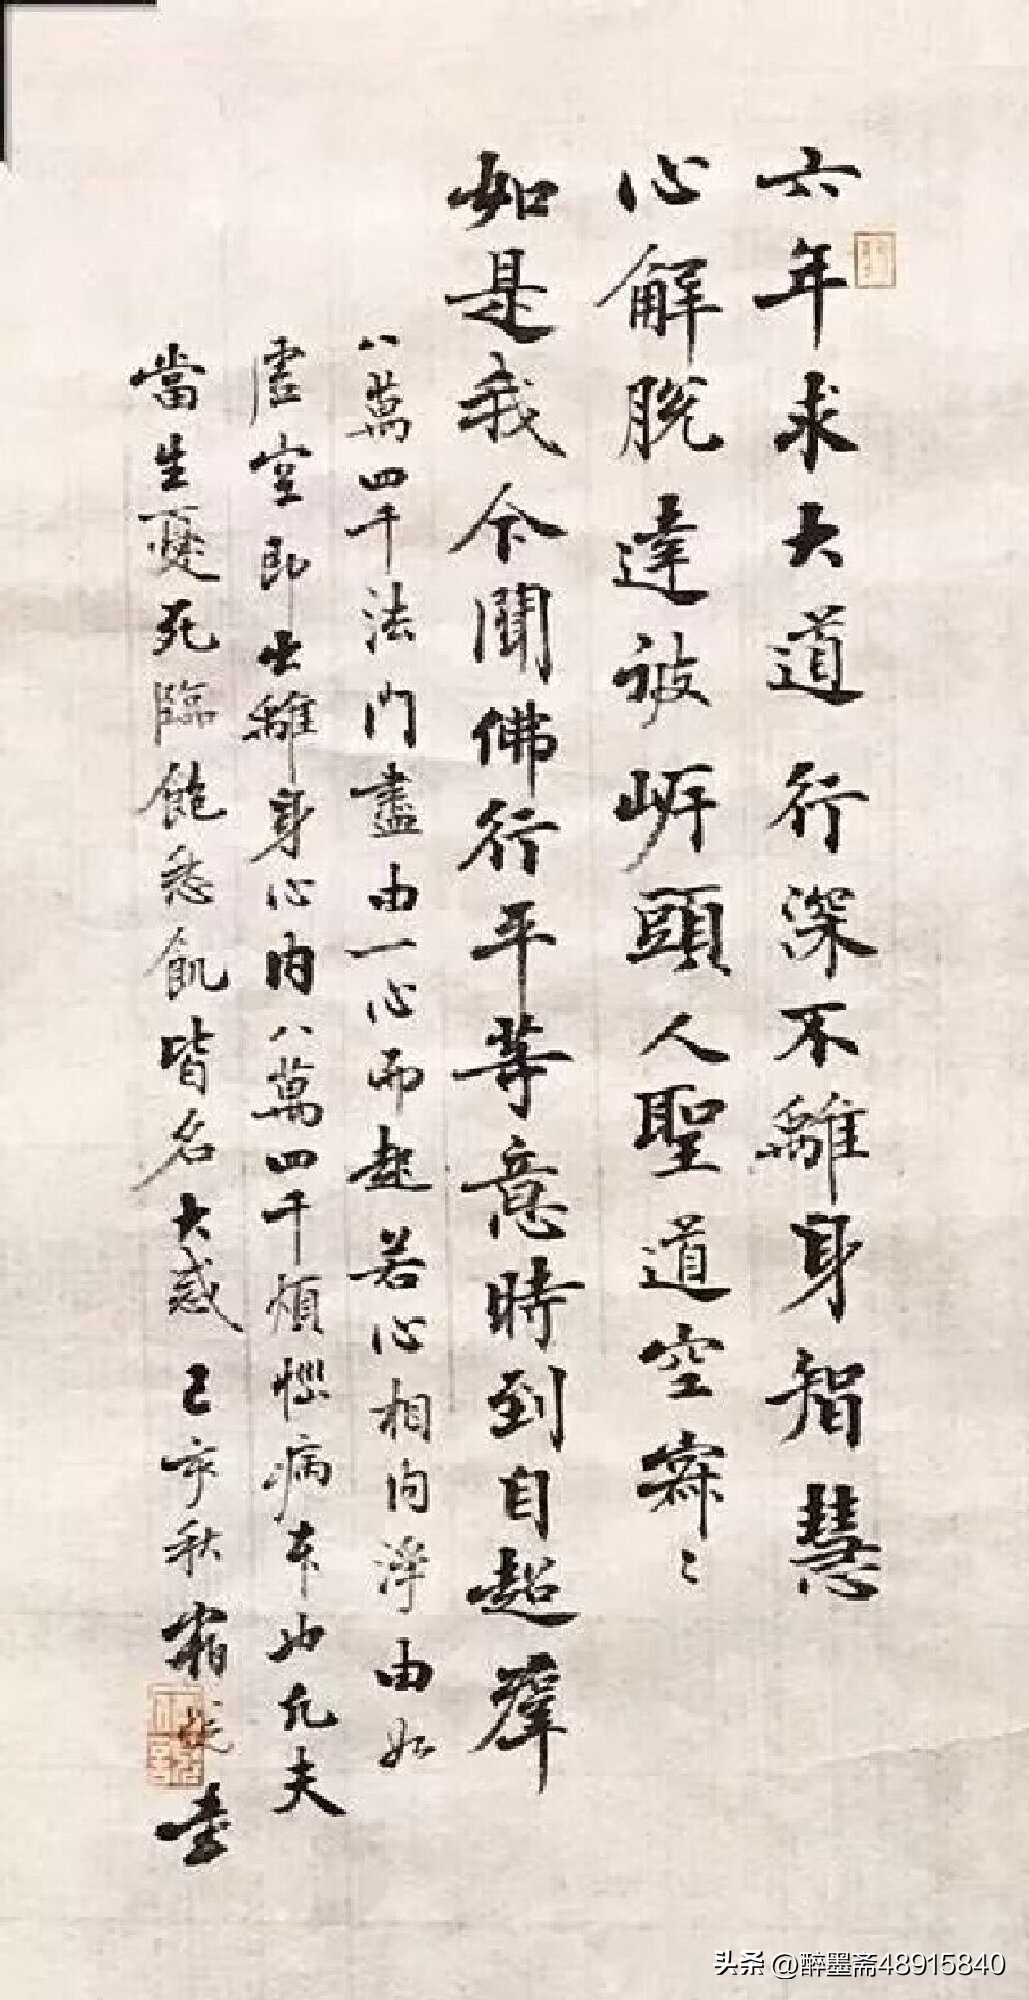 六年求大道行深不離身智慧
心解脱達彼岍頭人聖道空寂〻
如是我今聞佛行平等意時到自超群
八萬四千法门盡由一心而起若心相内淨由如
虚空即出離身心内八萬四千煩惱病本也凡夫
當生憂死臨飽愁飢皆名大惑 己亥秋 霜 書
头条 @醉墨斋48915840